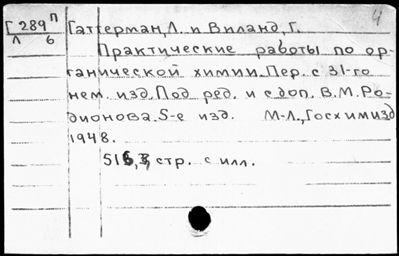 Г 289 П
Л 6
4
Гаттерман, Л. и Виланд, Г.
Практические работы по ор-
ганической химии. Пер. с 31-го
нем. изд. Под ред. и с доп. В.М. Ро-
дионова. 5-е изд. М-Л., Госхимизд
1948.
стр. с илл.